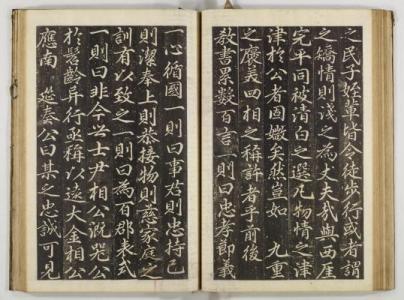 之民子姪輩皆令徒步行或者謂
之矯情則淺之為丈夫哉與西厓
完平同被清白之選凡物情之津
津於公者固嫩矣然豈如 九重
之褒美四相之稱許者乎前後
教書累數百言一則曰忠孝節義
一心循國一則曰事君則忠持己
則潔奉上則恭接物則慈家庭之
訓有以致之一則曰為百郡表式
一則曰非今世士尹相公漑咒公
於髫齡異行亟稱以遠大金相公
應南 筵奏公曰某之忠誠可見